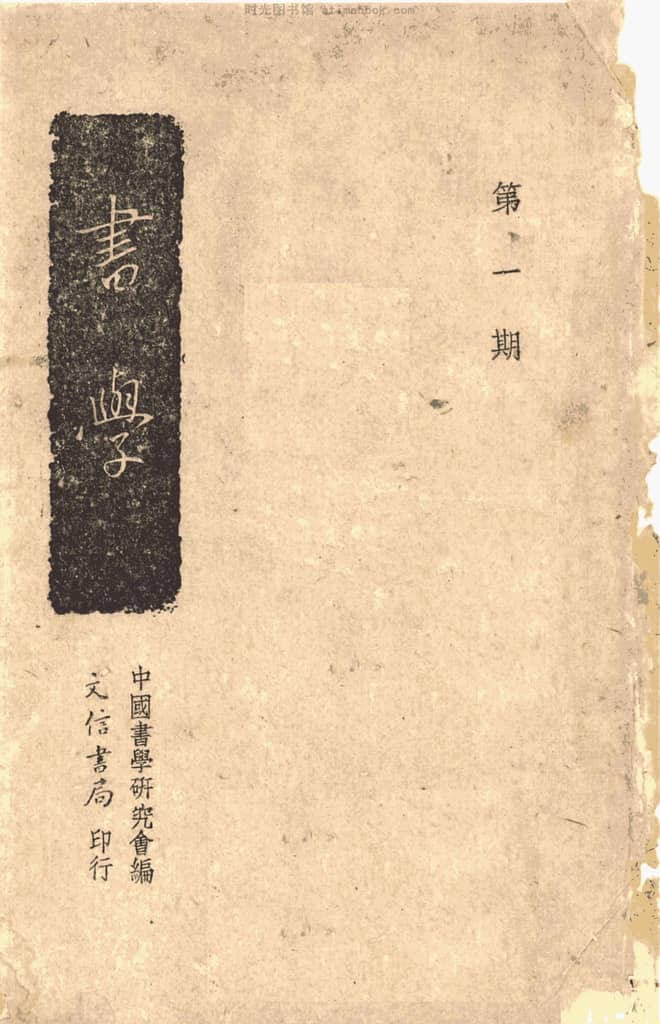 时光图书馆
第一期
書學
中國書學研究會編
文信書局 印行